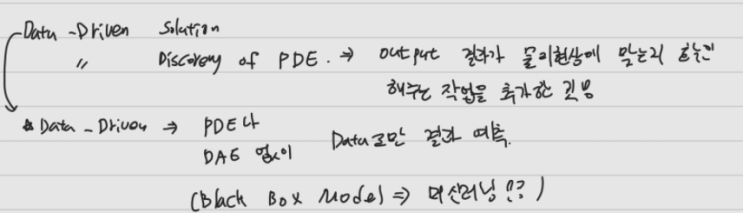 Data-Driven Solution
〃 Discovery of PDE. → output 결과가 물리현상에 맞는지 확인
해주는 작업을 추가한 것임
* Data-Driven ⇒ PDE나
DAE 없이 Data로만 결과 예측.
(Black Box Model ⇒ 머신러닝!?)